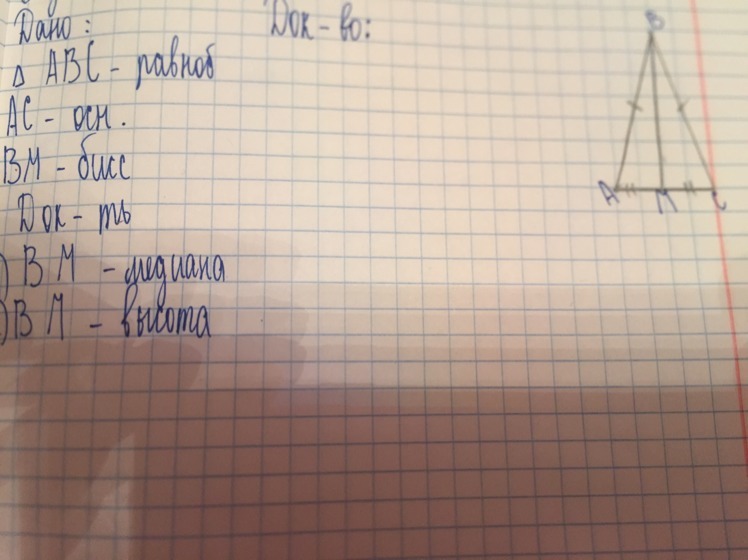 Дано:
Док-во:
△ ABC - равноб
AC - осн.
BM - бисс
Док-ть
) BM - медиана
) BM - высота
B
A M C